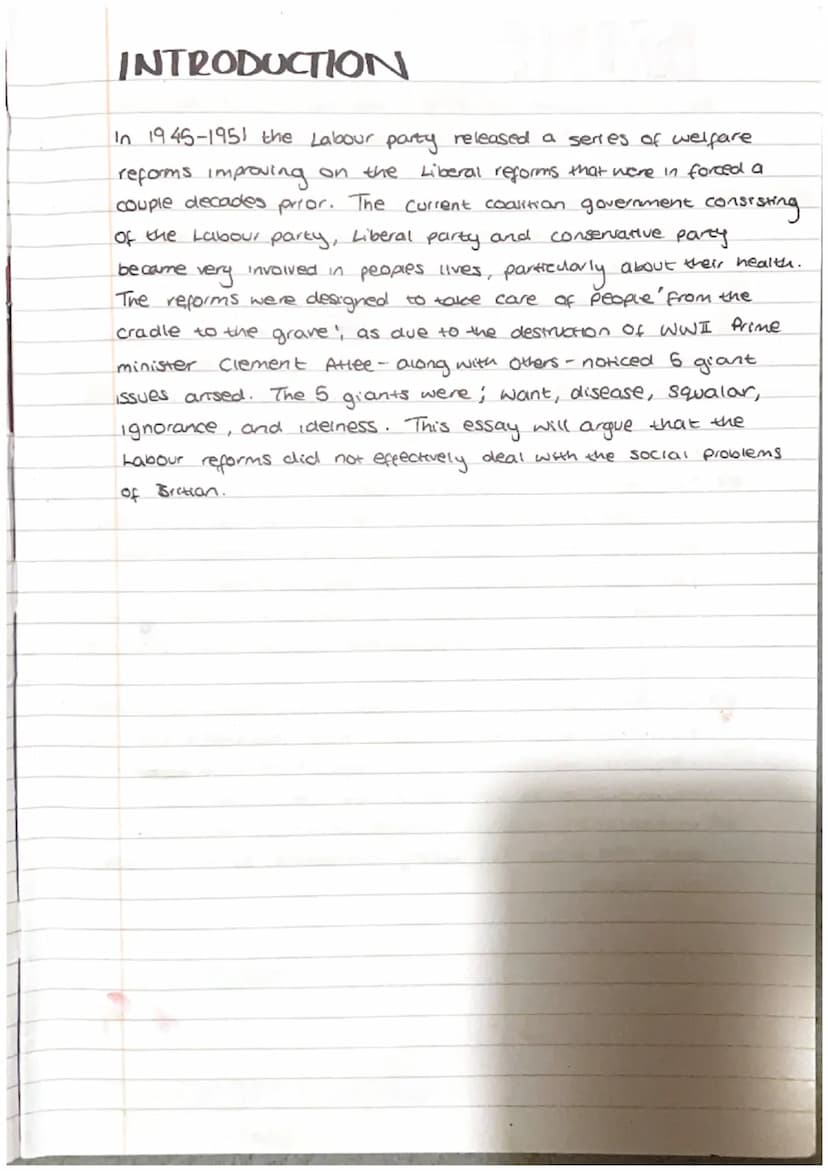 INTRODUCTION
In 1945-1951 the Labour party released a series of welfare
reforms improving on the Liberal reforms that were in forced a
couple decades prior. The current coalition government consisting
of the Labour party, Liberal party and conservative party
became very involved in peoples lives, particularly about their health.
The reforms were designed to take care of people 'from the
cradle to the grave', as due to the destruction of WWII Prime
minister Clement Attlee - along with others - noticed 5 giant
issues arised. The 5 giants were; want, disease, squalor,
ignorance, and idelness. This essay will argue that the
Labour reforms did not effectively deal with the social problems
of Britian.